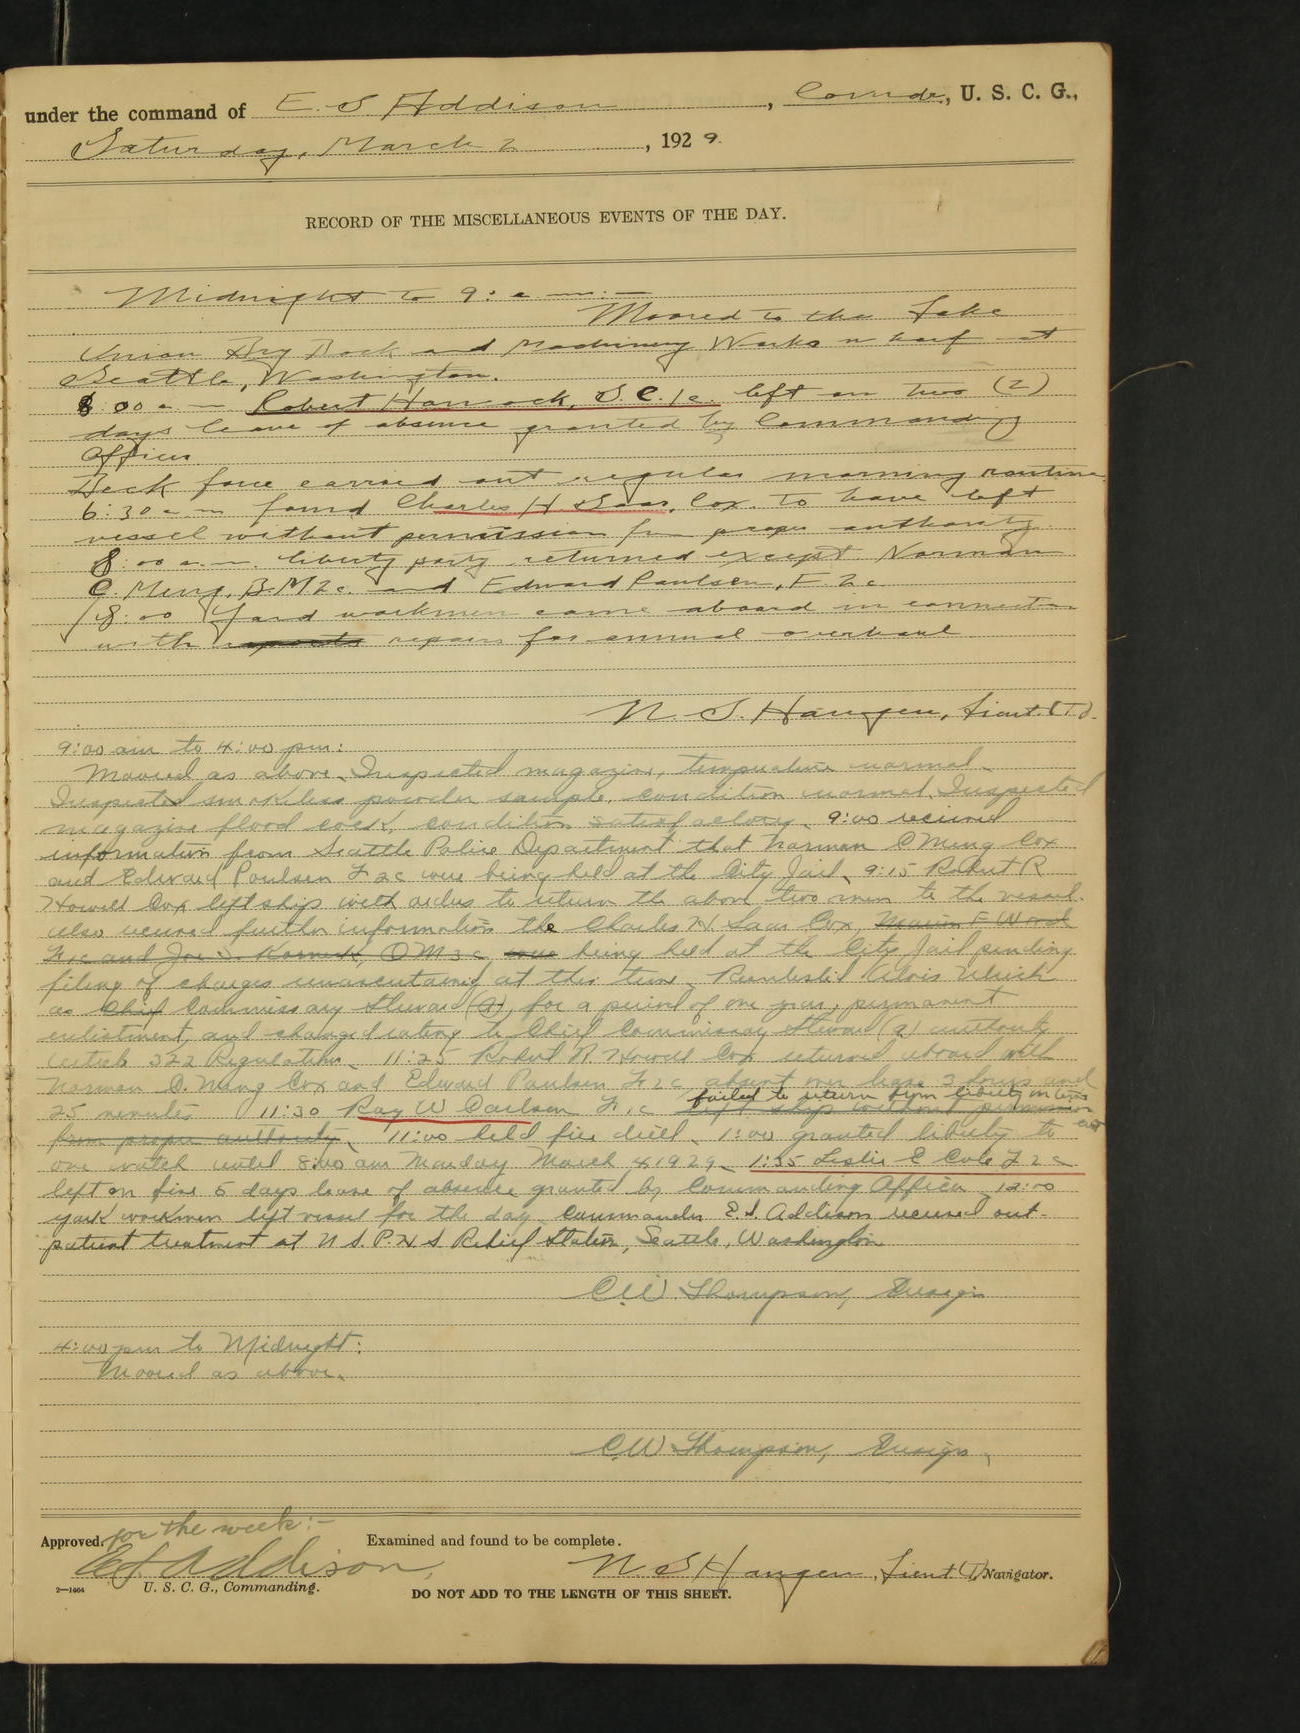 under the command of E. S Addison, Comdr., U. S. C. G.,
Saturday, March 2, 1929.
RECORD OF THE MISCELLANEOUS EVENTS OF THE DAY.
Midnight to 9: a.m.:—
Moored to the Lake
Union Dry Dock and Machinery Works wharf at
Seattle, Washington.
8:00 a m Robert Hancock, S.C.1c. left on two (2)
days leave of absence granted by Commanding
Officer
Deck force carried out regular morning routine
6:30 a m found Charles H. Saar, Cox. to have left
vessel without permission fm proper authority.
8:00 a.m. liberty party returned except Norman
C. Meng, B.M2c. and Edward Paulsen, F2c
8:00 Yard workmen came aboard in connection
with repairs for annual overhaul
N. S. Haugen, Lieut. (T).
9:00 am to 4:00 pm:
Moored as above. Inspected magazine, temperature normal.
Inspected smokeless powder sample, condition normal. Inspected
magazine flood cock, condition satisfactory. 9:00 received
information from Seattle Police Department that Norman C Meng Cox
and Edward Paulsen F2c were being held at the City Jail. 9:15 Robert R
Howell Cox left ship with orders to return the above two men to the vessel.
also received further information the Charles H. Saar Cox, F Wood
F1c and Joe S. QM3c, were being held at the City Jail pending
filing of charges unascertained at this time. Reenlisted Alois Ulrich
as Chief Commissary Steward (a), for a period of one year, permanent
enlistment, and changed rating to Chief Commissary Steward (a) authority
article 322 Regulations. 11:25 Robert R. Howell Cox returned aboard with
Norman C. Meng Cox and Edward Paulsen F2c, absent over leave 3 hours and
25 minutes 11:30 Ray W Carlson F1c left ship without permission failed to return from liberty on time
from proper authority. 11:00 held fire drill. 1:00 granted liberty to
one watch until 8:00 am Monday March 4, 1929. 1:35 Leslie E Cole F2c
left on five 5 days leave of absence granted by Commanding Officer 12:00
yard workmen left vessel for the day. Commander E.S. Addison received out-
patient treatment at U.S.P.H.S Relief Station, Seattle, Washington
C.W. Thompson, Ensign
4:00 pm to Midnight:
Moored as above.
C.W Thompson, Ensign.
Approved. for the week:—
Examined and found to be complete.
E.S. Addison,
N. S Haugen, Lieut. (T) Navigator.
2—1404
U. S. C. G., Commanding.
DO NOT ADD TO THE LENGTH OF THIS SHEET.